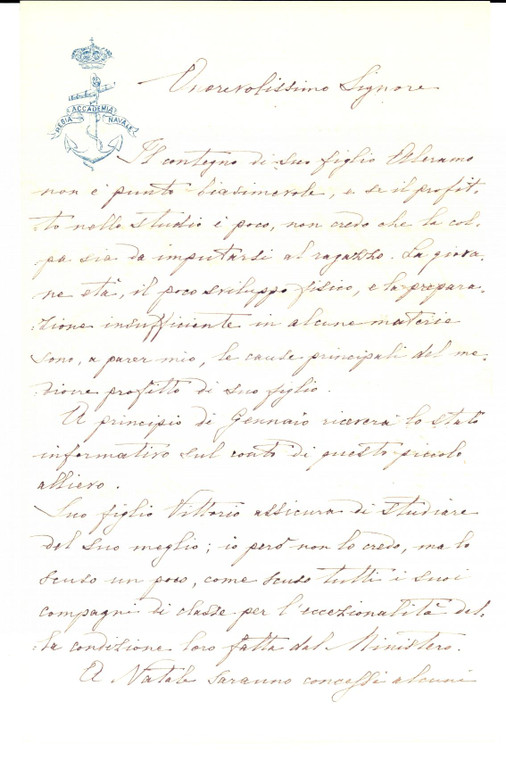 REGIA ACCADEMIA NAVALE
Onorevolissimo Signore
Il contegno di suo figlio Aleramo
non è punto biasimevole, e se il profit-
to nello studio è poco, non credo che la col-
pa sia da imputarsi al ragazzo. La giova-
ne età, il poco sviluppo fisico, e la prepara-
zione insufficiente in alcune materie
sono, a parer mio, le cause principali del me-
diocre profitto di suo figlio.
A principio di Gennaio riceverà lo stato
informativo sul conto di questo piccolo
allievo.
Suo figlio Vittorio assicura di studiare
del suo meglio; io però non lo credo, ma lo
scuso un poco, come scuso tutti i suoi
compagni di classe per l'eccezionalità del-
la condizione loro fatta dal Ministero.
A Natale saranno concessi alcuni